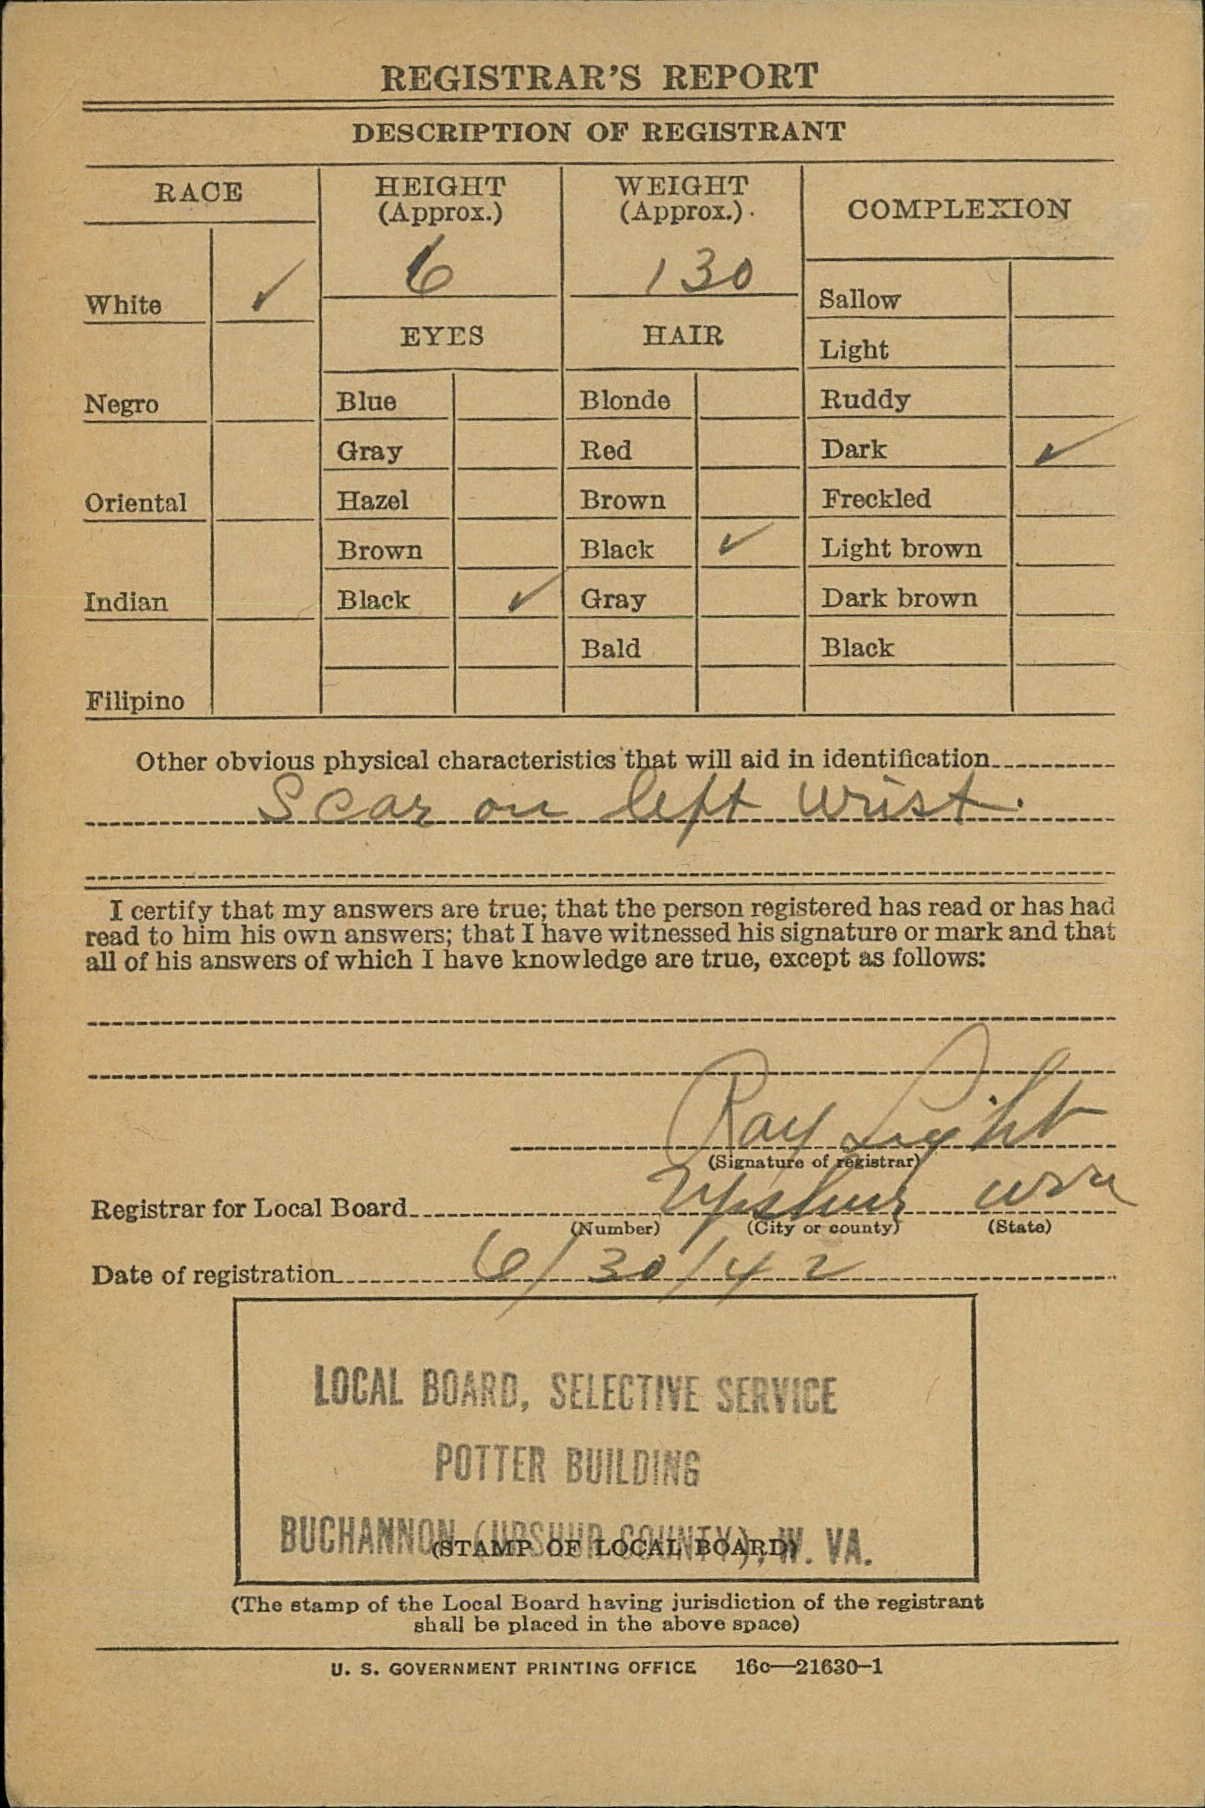 REGISTRAR'S REPORT
DESCRIPTION OF REGISTRANT
RACE
HEIGHT
(Approx.)
WEIGHT
(Approx.)
COMPLEXION
6
130
White ✓
Sallow
EYES
HAIR
Light
Negro
Blue
Blonde
Ruddy
Gray
Red
Dark ✓
Oriental
Hazel
Brown
Freckled
Brown
Black ✓
Light brown
Indian
Black ✓
Gray
Dark brown
Bald
Black
Filipino
Other obvious physical characteristics that will aid in identification
Scar on left wrist.
I certify that my answers are true; that the person registered has read or has had
read to him his own answers; that I have witnessed his signature or mark and that
all of his answers of which I have knowledge are true, except as follows:
Ray Light
(Signature of registrar)
Registrar for Local Board Upshur WVa
(Number) (City or county) (State)
Date of registration 6/30/42
LOCAL BOARD, SELECTIVE SERVICE
POTTER BUILDING
BUCHANNON (UPSHUR COUNTY), W. VA.
(STAMP OF LOCAL BOARD)
(The stamp of the Local Board having jurisdiction of the registrant
shall be placed in the above space)
U. S. GOVERNMENT PRINTING OFFICE 16c—21630-1